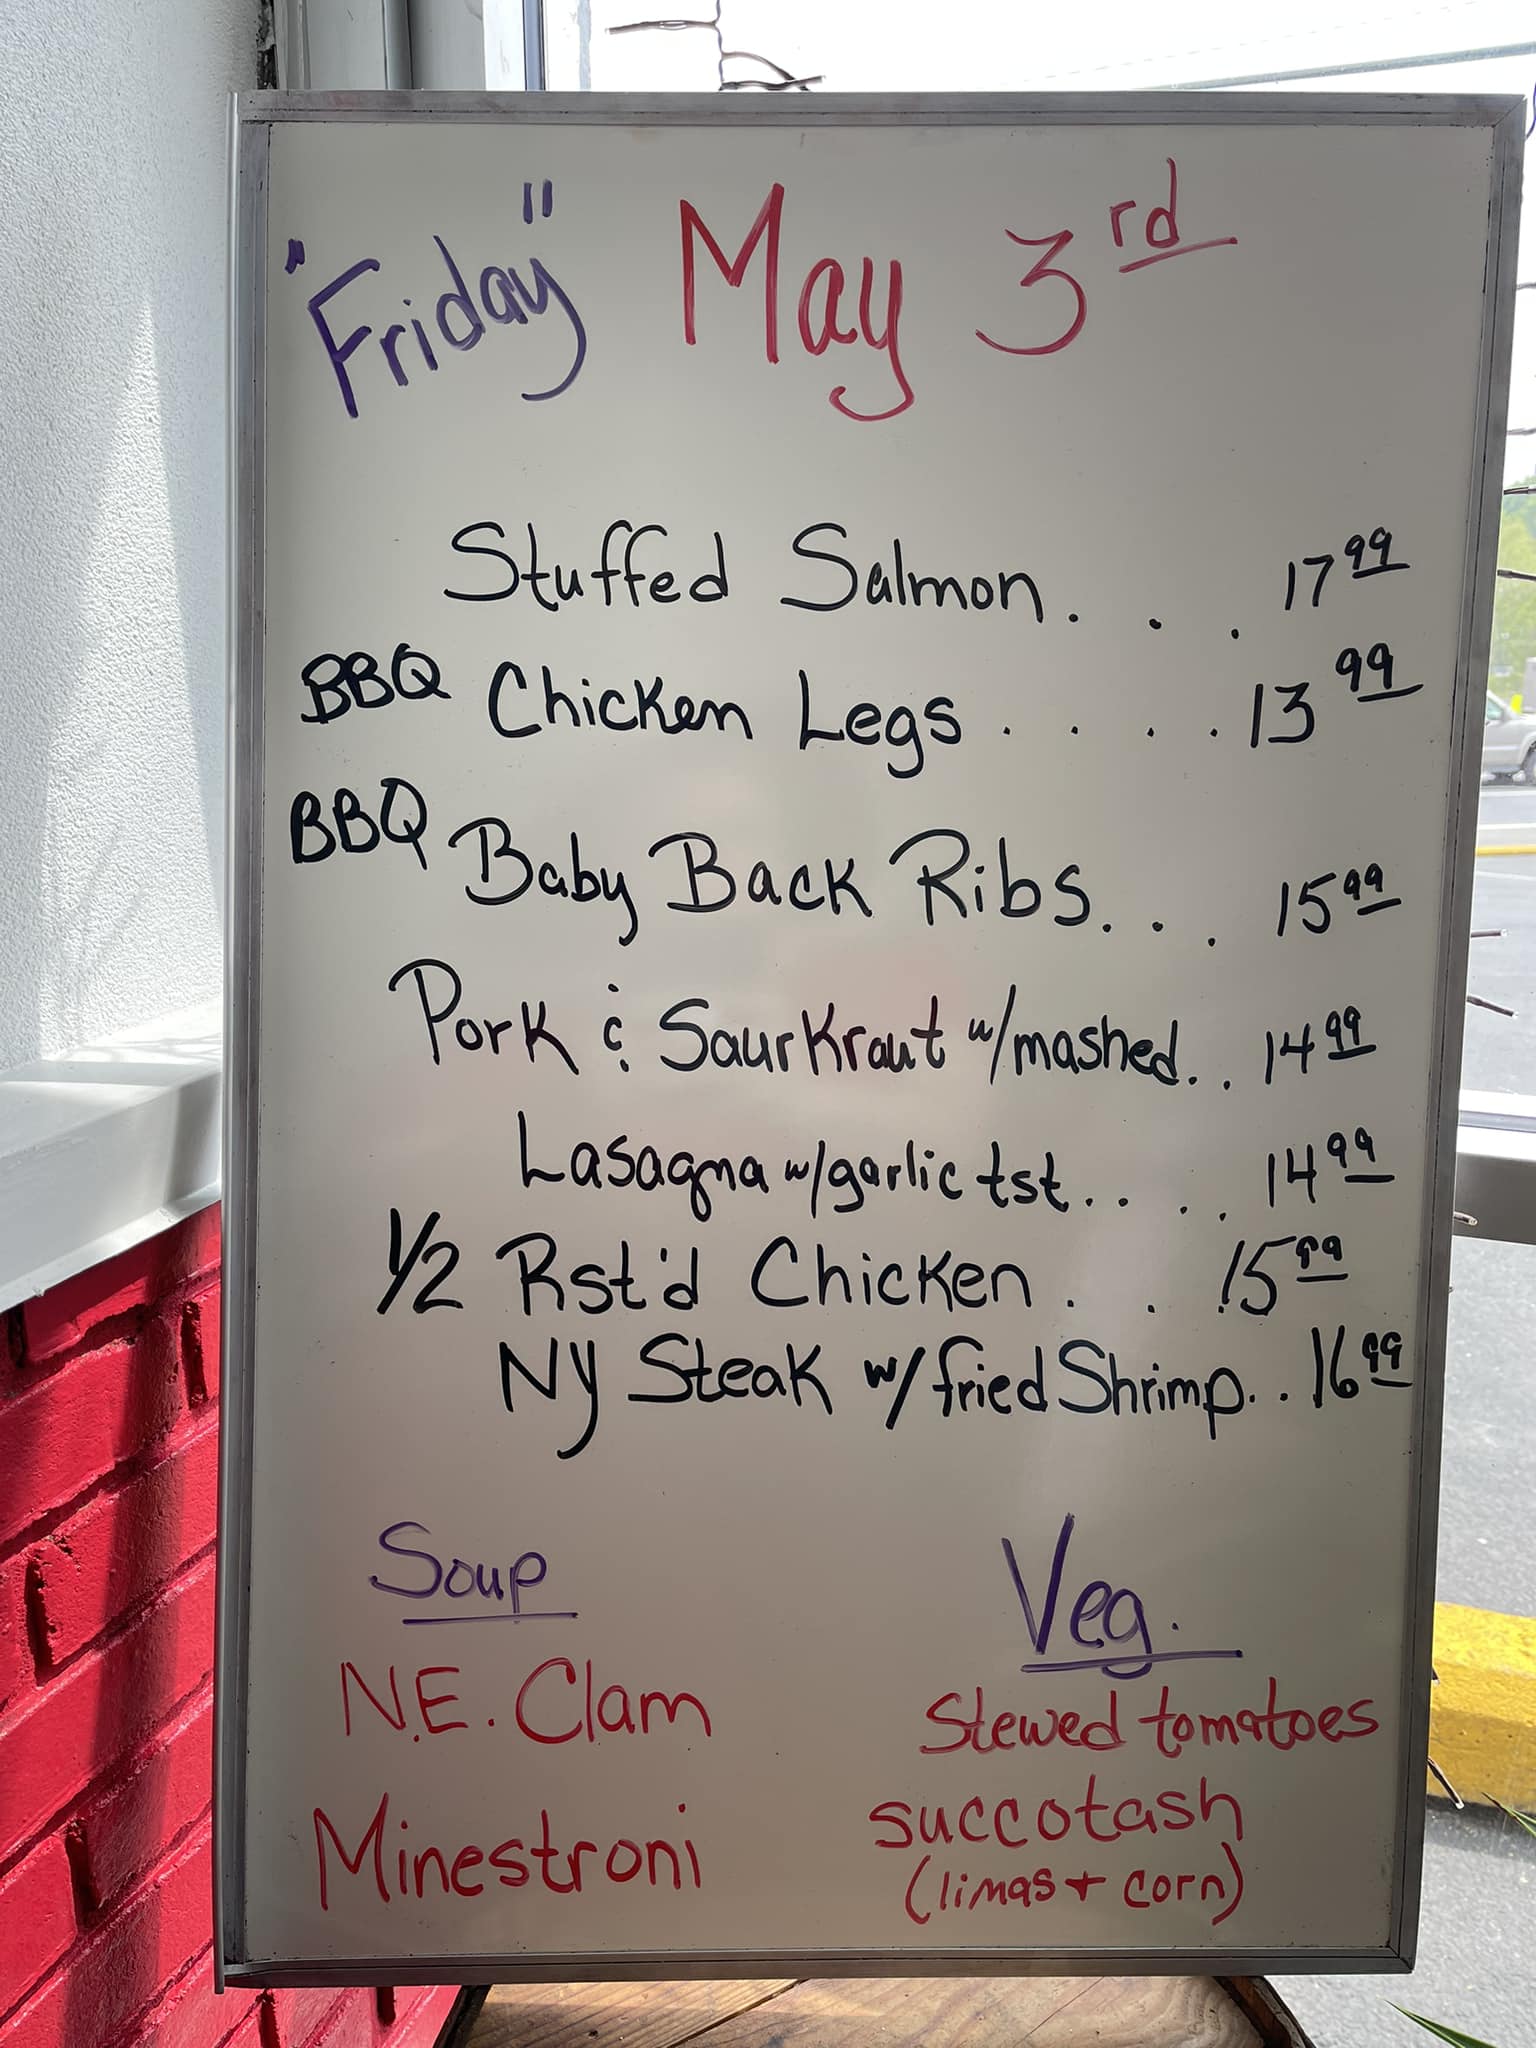 "Friday" May 3rd
Stuffed Salmon. . . 17 99
BBQ Chicken Legs . . . . 13 99
BBQ Baby Back Ribs. . . 15 99
Pork & SaurKraut w/mashed. . 14 99
Lasagna w/garlic tst. . . . 14 99
1/2 Rst'd Chicken . . . 15 99
NY Steak w/fried Shrimp. . 16 99
Soup
N.E. Clam
Minestroni
Veg.
Stewed tomatoes
succotash
(limas + corn)